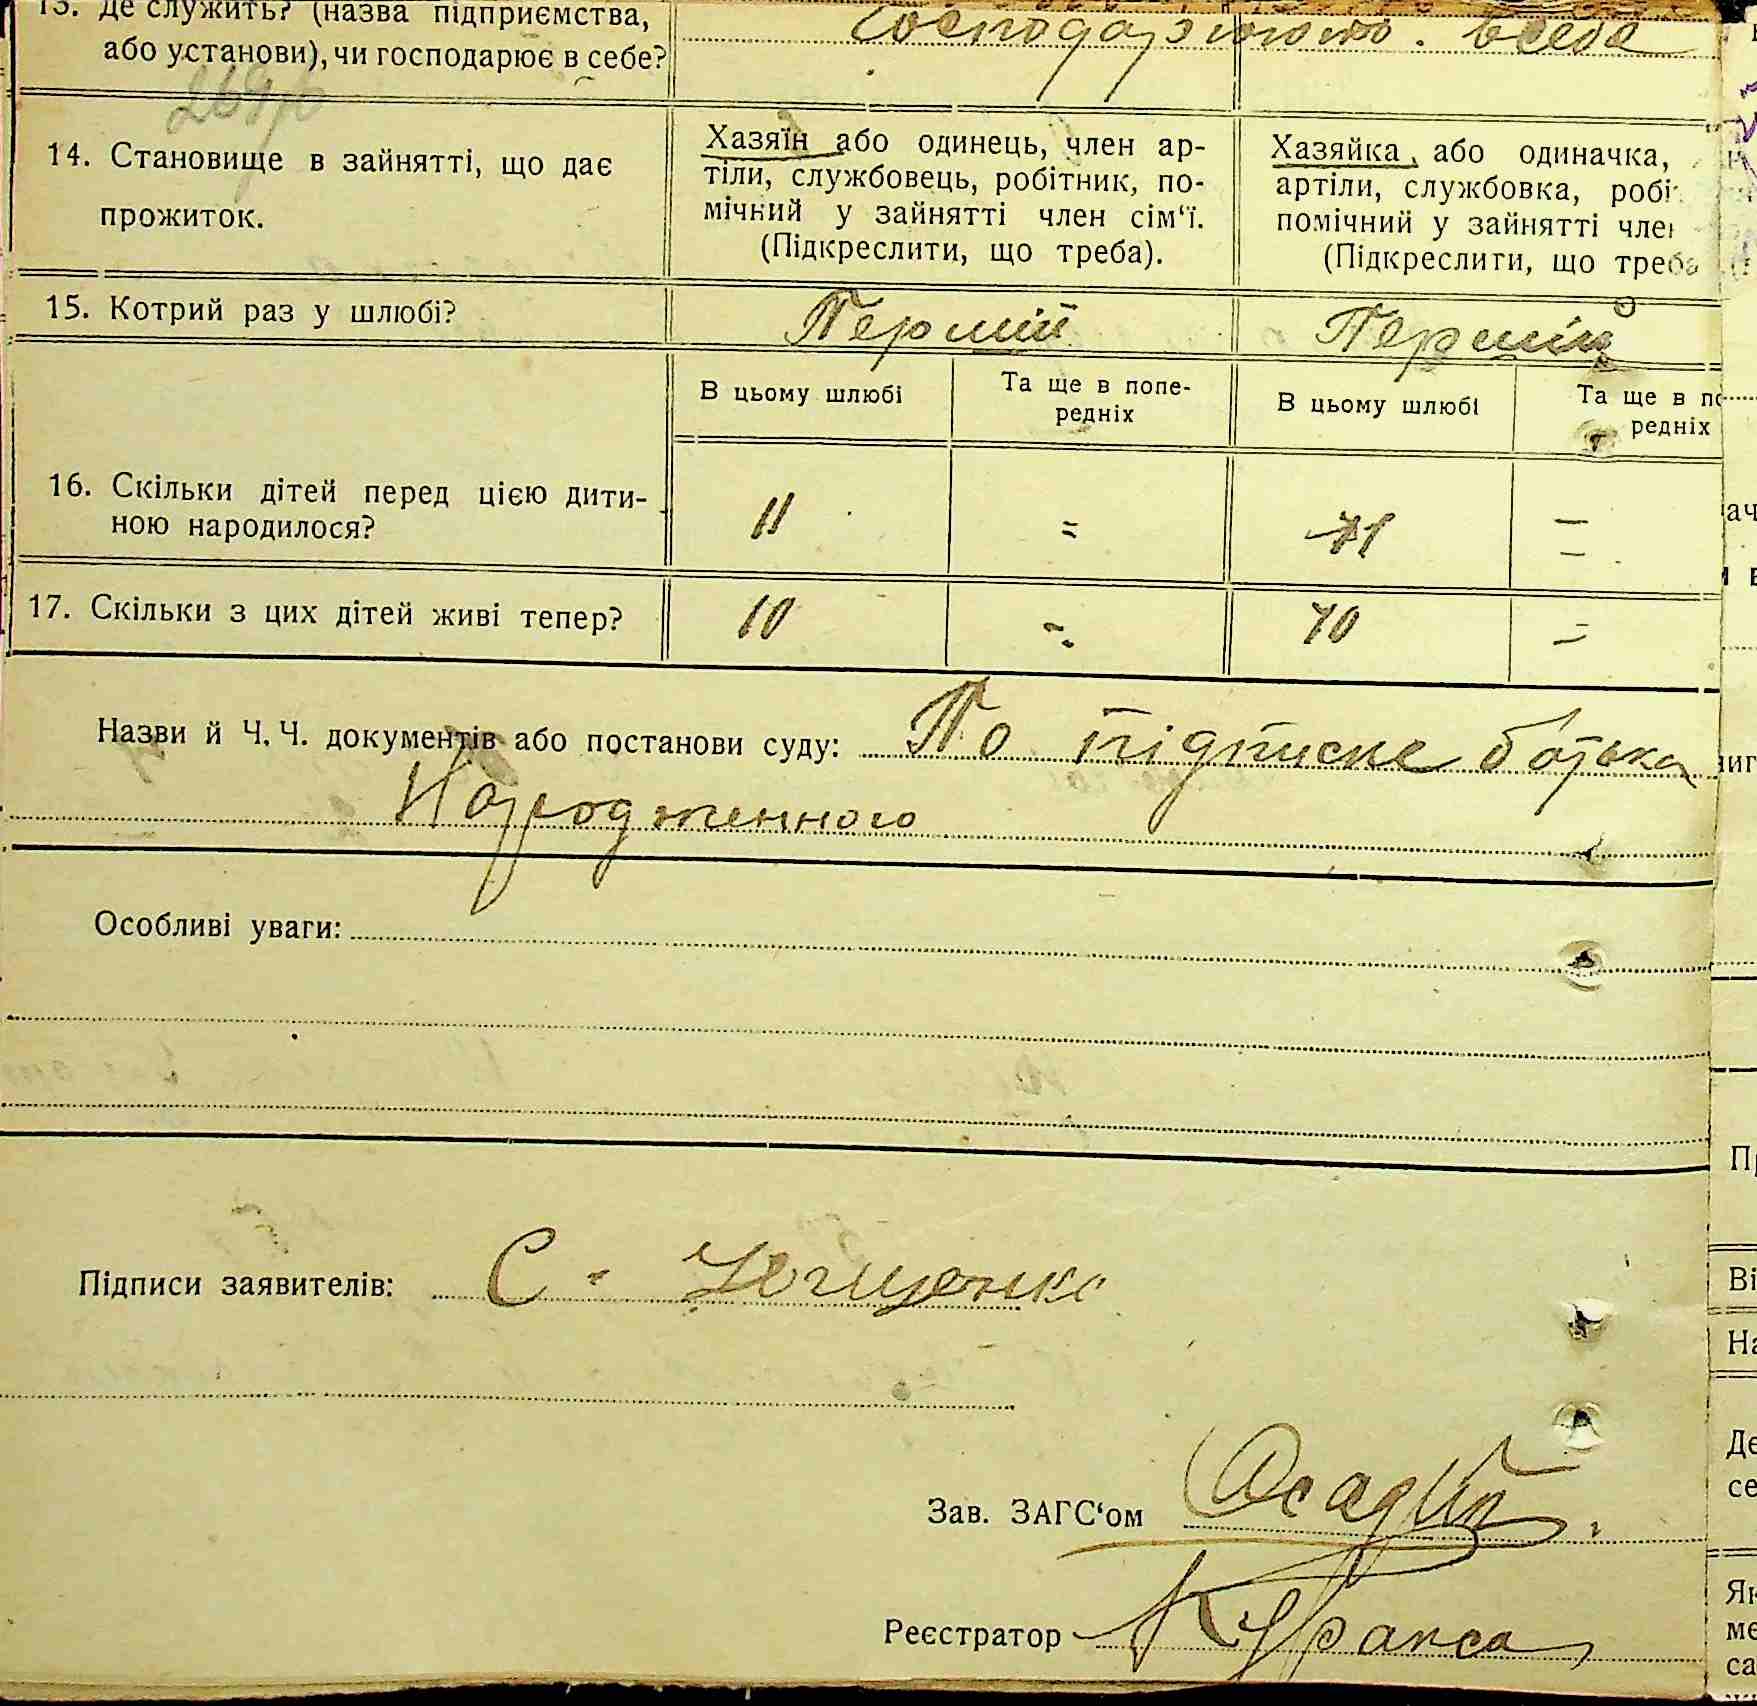 13. Де служить? (назва підприємства,
або установи), чи господарює в себе?
Господарюють. в себе
14. Становище в зайнятті, що дає
прожиток.
Хазяїн або одинець, член ар-
тіли, службовець, робітник, по-
мічний у зайнятті член сім‘ї.
(Підкреслити, що треба).
Хазяйка, або одиначка,
артіли, службовка, робі
помічний у зайнятті член
(Підкреслити, що треба
15. Котрий раз у шлюбі?
Перший
Перший
В цьому шлюбі
Та ще в попе-
редніх
В цьому шлюбі
Та ще в по
редніх
16. Скільки дітей перед цією дити-
ною народилося?
11 = 11 =
17. Скільки з цих дітей живі тепер?
10 = 10 =
Назви й Ч. Ч. документів або постанови суду: По підписке батька
Народженного
Особливі уваги:
Підписи заявителів: С.
Зав. ЗАГС‘ом Осадчий
Реєстратор